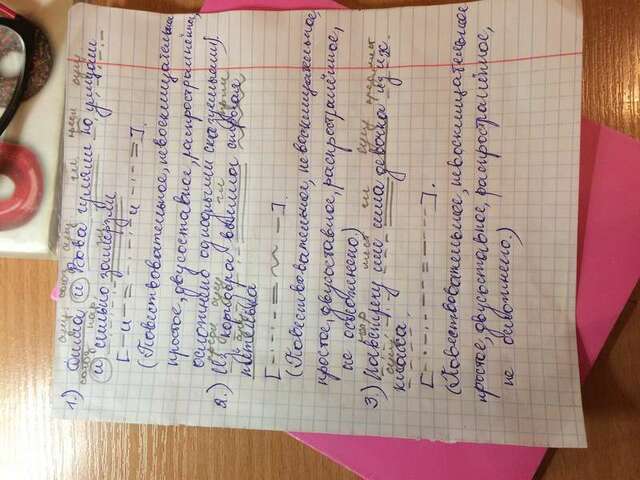 сущ. союз сущ гл. предл сущ
1.) Дима и Вова гуляли по улицам
союз нар. гл
и сильно замёрзли
[ – и – = – · – · – и – · – = ].
(Повествовательное, невосклицательное
простое, двусоставное, распространённое,
осложнено однодными сказуемыми).
предл сущ гл прил
2.) Из коридора вышла старая
сущ
нянька
[ – · – · – = ~~ – ].
(Повествовательное, невосклицательное,
простое, двусоставное, распространённое,
не осложнено.)
нар мест гл сущ предл мест
3.) Навстречу им шла девочка из их
сущ.
класса.
[ – · – · – – – = – – – – ].
(Повествовательное, невосклицательное
простое, двусоставное, распространённое,
не осложнено.)